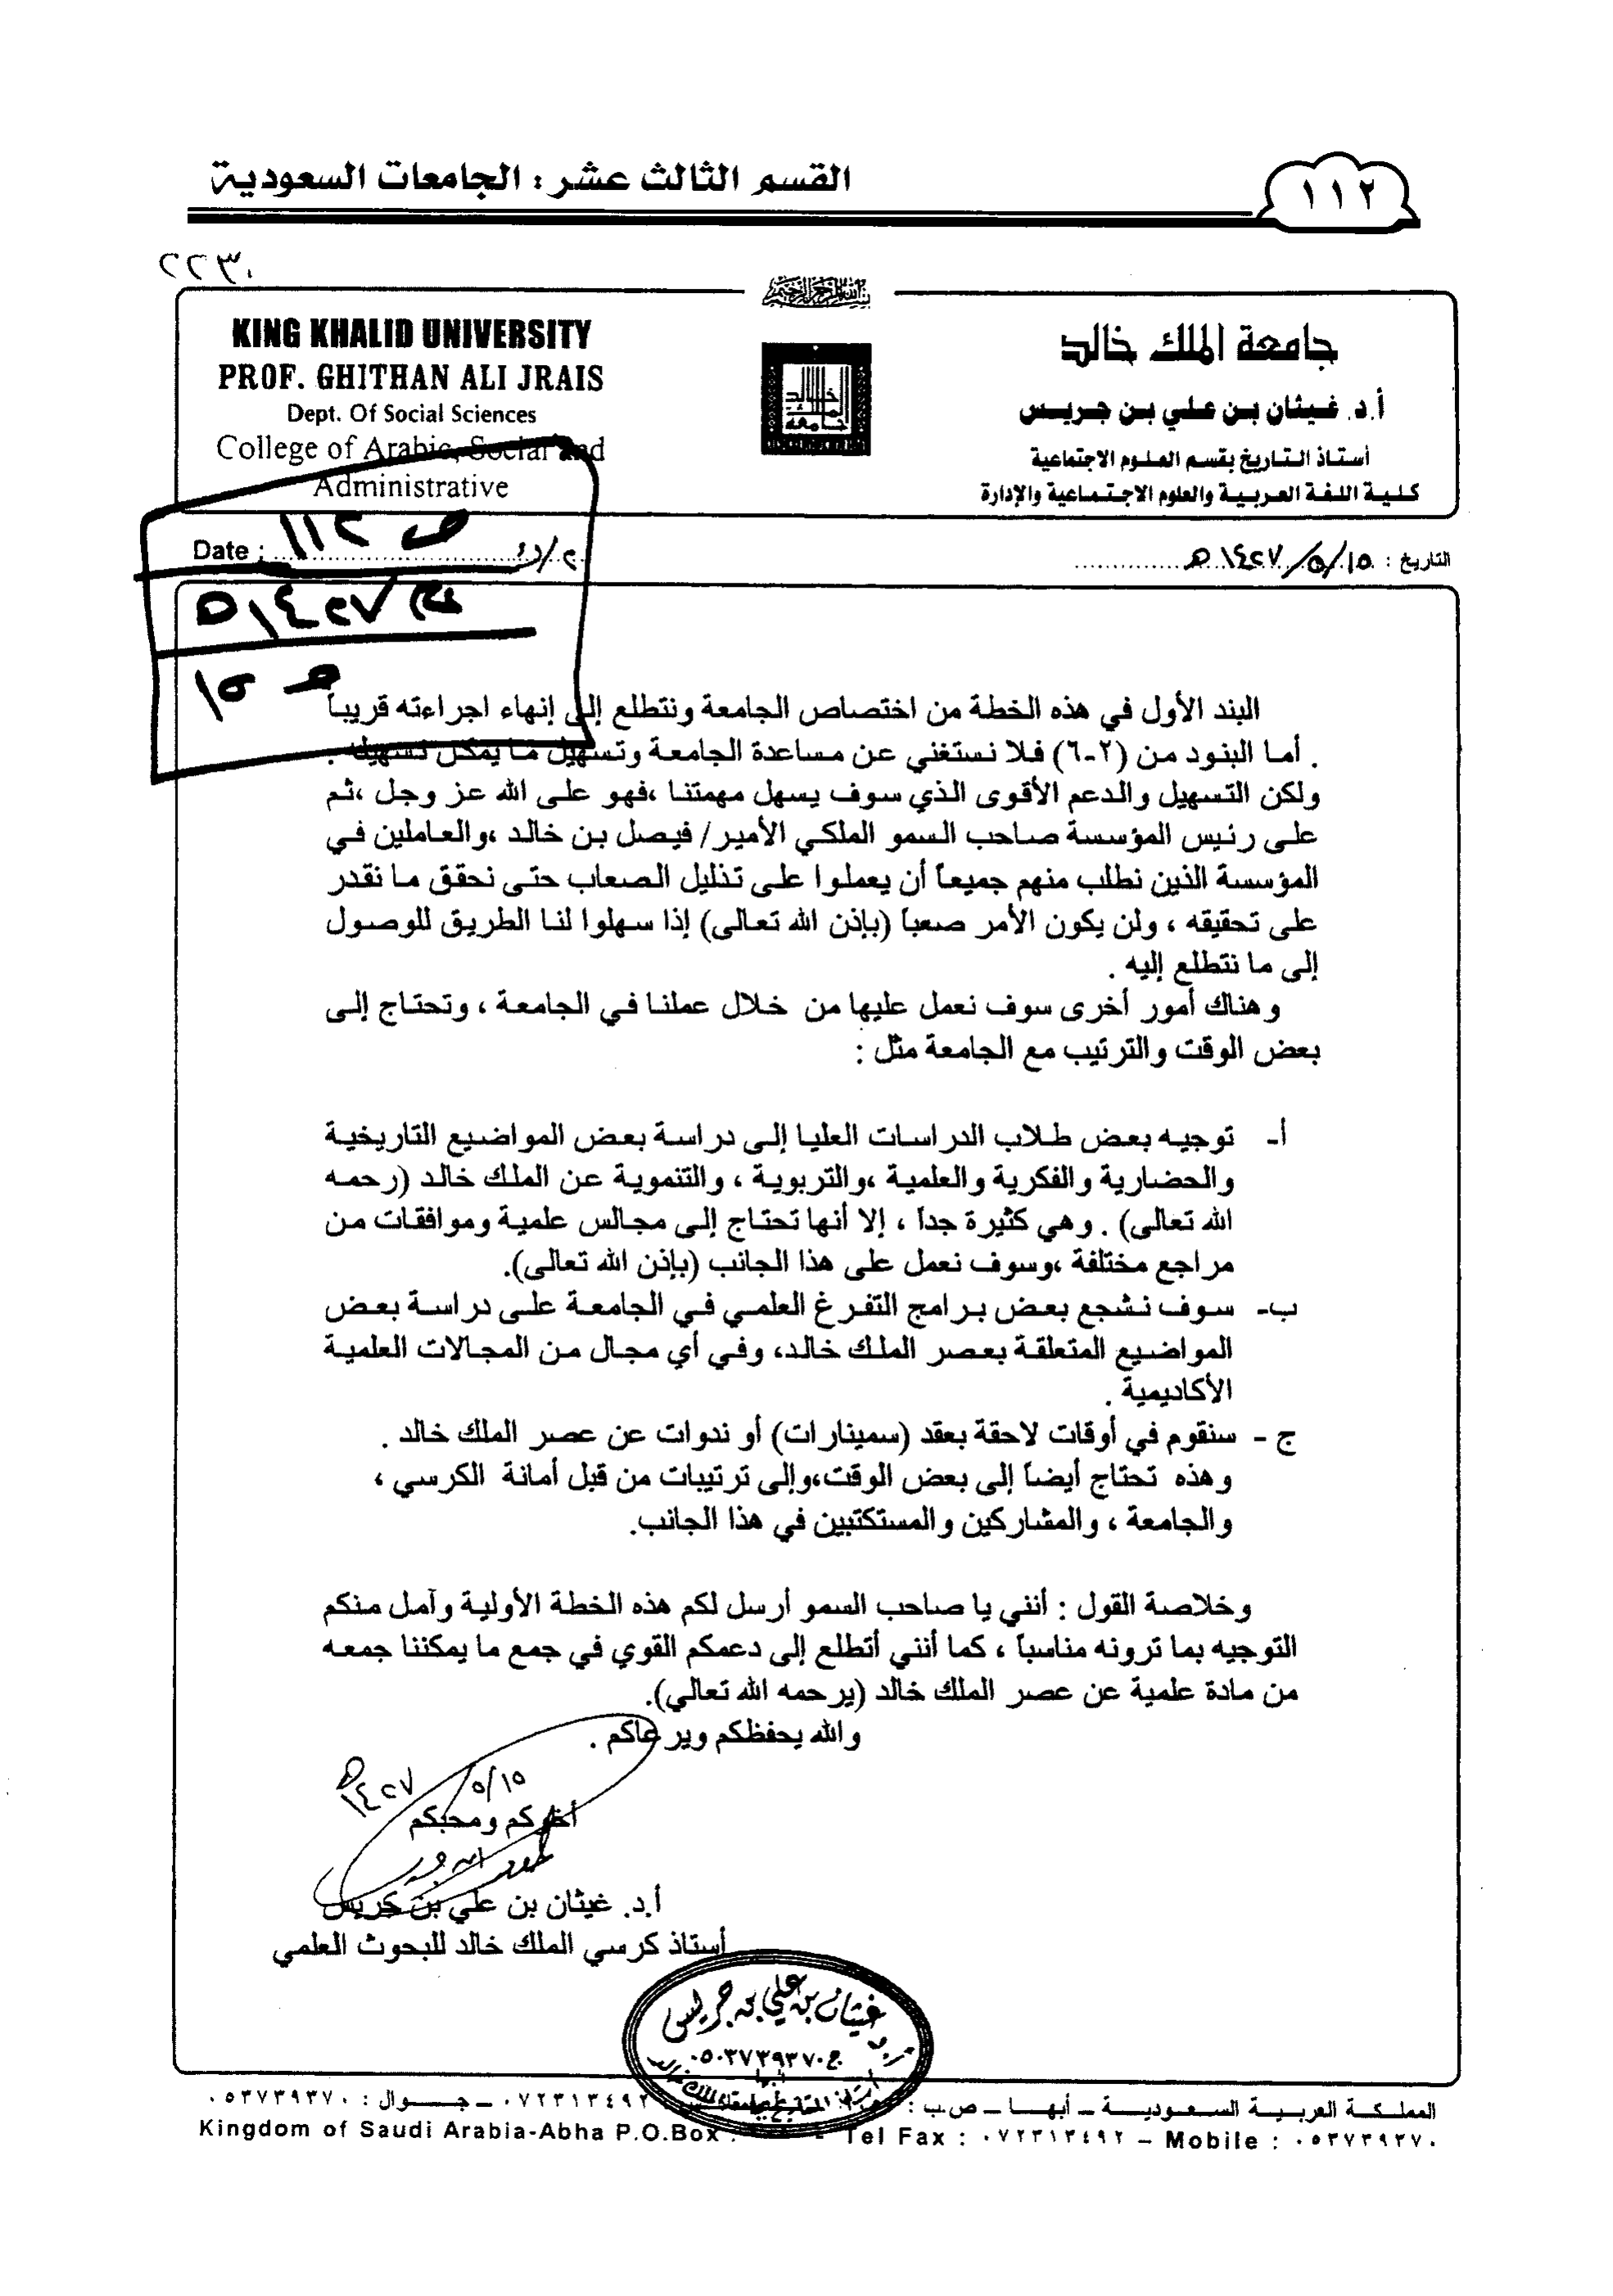 القسم الثالث عشر : الجامعات السعودية
١١٢
٢٢٣٠
بسم الله الرحمن الرحيم
KING KHALID UNIVERSITY
PROF. GHITHAN ALI JRAIS
Dept. Of Social Sciences
College of Arabic, Social and
Administrative
جامعة الملك خالد
أ.د. غيثان بن علي بن جريس
أستاذ التاريخ بقسم العلوم الاجتماعية
كلية اللغة العربية والعلوم الاجتماعية والإدارة
جامعة الملك خالد
Date :
ص ١١٢
١٤٢٧هـ
ص ١٥
التاريخ : ١٥/٥/١٤٢٧هـ
البند الأول في هذه الخطة من اختصاص الجامعة ونتطلع إلى إنهاء اجراءته قريباً
. أما البنود من (٢-٦) فلا نستغني عن مساعدة الجامعة وتسهيل ما يمكن تسهيله .
ولكن التسهيل والدعم الأقوى الذي سوف يسهل مهمتنا ،فهو على الله عز وجل ،ثم
على رئيس المؤسسة صاحب السمو الملكي الأمير/ فيصل بن خالد ،والعاملين في
المؤسسة الذين نطلب منهم جميعاً أن يعملوا على تذليل الصعاب حتى نحقق ما نقدر
على تحقيقه ، ولن يكون الأمر صعباً (بإذن الله تعالى) إذا سهلوا لنا الطريق للوصول
إلى ما نتطلع إليه .
وهناك أمور أخرى سوف نعمل عليها من خلال عملنا في الجامعة ، وتحتاج إلى
بعض الوقت والترتيب مع الجامعة مثل :
أ- توجيه بعض طلاب الدراسات العليا إلى دراسة بعض المواضيع التاريخية
والحضارية والفكرية والعلمية ،والتربوية ، والتنموية عن الملك خالد (رحمه
الله تعالى) . وهي كثيرة جداً ، إلا أنها تحتاج إلى مجالس علمية وموافقات من
مراجع مختلفة ،وسوف نعمل على هذا الجانب (بإذن الله تعالى).
ب- سوف نشجع بعض برامج التفرغ العلمي في الجامعة على دراسة بعض
المواضيع المتعلقة بعصر الملك خالد، وفي أي مجال من المجالات العلمية
الأكاديمية .
ج - سنقوم في أوقات لاحقة بعقد (سمينارات) أو ندوات عن عصر الملك خالد .
وهذه تحتاج أيضاً إلى بعض الوقت،وإلى ترتيبات من قبل أمانة الكرسي ،
والجامعة ، والمشاركين والمستكتبين في هذا الجانب.
وخلاصة القول : أنني يا صاحب السمو أرسل لكم هذه الخطة الأولية وآمل منكم
التوجيه بما ترونه مناسباً ، كما أنني أتطلع إلى دعمكم القوي في جمع ما يمكننا جمعه
من مادة علمية عن عصر الملك خالد (يرحمه الله تعالي).
والله يحفظكم ويرعاكم .
١٥/٥/١٤٢٧هـ
أخوكم ومحبكم
أ.د. غيثان بن علي بن جريس
أستاذ كرسي الملك خالد للبحوث العلمي
غيثان بن علي بن جريس
ج ٠٥٠٣٧٣٩٣٧٠
أبها
المملكة العربية السعودية – أبها – ص.ب : ٠٧٢٣١٣٤٩٢ – جوال : ٠٥٣٧٣٩٣٧٠
Kingdom of Saudi Arabia-Abha P.O.Box Tel Fax : ٠٧٢٣١٣٤٩٢ – Mobile : ٠٥٣٧٣٩٣٧٠